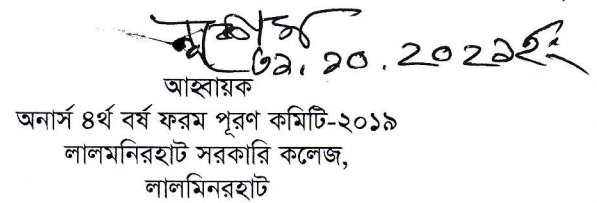 ৩১.১০.২০২১ইং
আহ্বায়ক
অনার্স ৪র্থ বর্ষ ফরম পূরণ কমিটি-২০১৯
লালমনিরহাট সরকারি কলেজ,
লালমিনরহাট